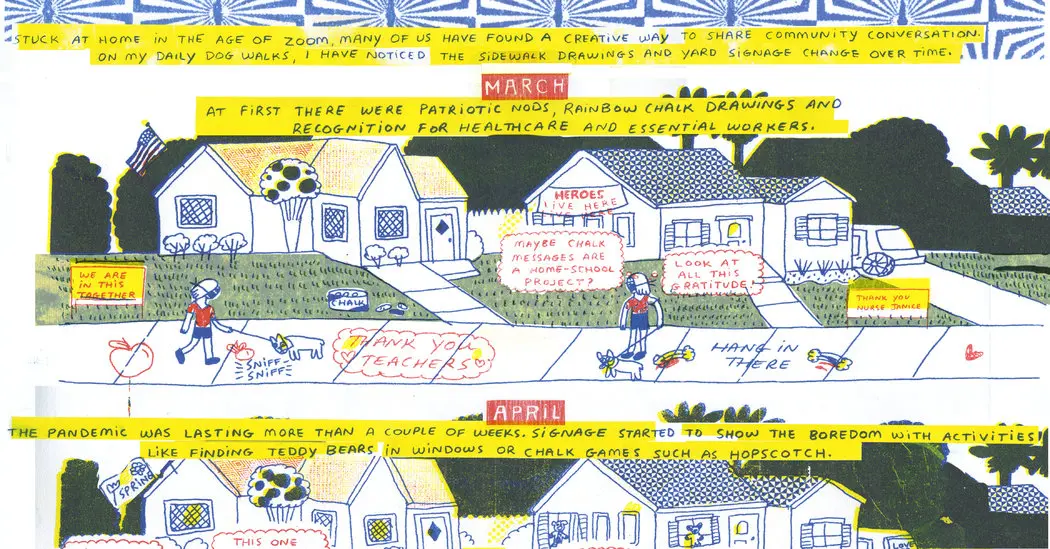 STUCK AT HOME IN THE AGE OF ZOOM, MANY OF US HAVE FOUND A CREATIVE WAY TO SHARE COMMUNITY CONVERSATION.
ON MY DAILY DOG WALKS, I HAVE NOTICED THE SIDEWALK DRAWINGS AND YARD SIGNAGE CHANGE OVER TIME.
MARCH
AT FIRST THERE WERE PATRIOTIC NODS, RAINBOW CHALK DRAWINGS AND
RECOGNITION FOR HEALTHCARE AND ESSENTIAL WORKERS.
HEROES
LIVE HERE
LIVE HERE
MAYBE CHALK
MESSAGES ARE
A HOME-SCHOOL
PROJECT?
LOOK AT
ALL THIS
GRATITUDE!
WE ARE
IN THIS
TAGETHER
CHALK
THANK YOU
NURSE JANICE
SNIFF
SNIFF
THANK YOU
TEACHERS
HANG IN
THERE
APRIL
THE PANDEMIC WAS LASTING MORE THAN A COUPLE OF WEEKS. SIGNAGE STARTED TO SHOW THE BOREDOM WITH ACTIVITIES
LIKE FINDING TEDDY BEARS IN WINDOWS OR CHALK GAMES SUCH AS HOPSCOTCH.
SPRING
THIS ONE
LOVE